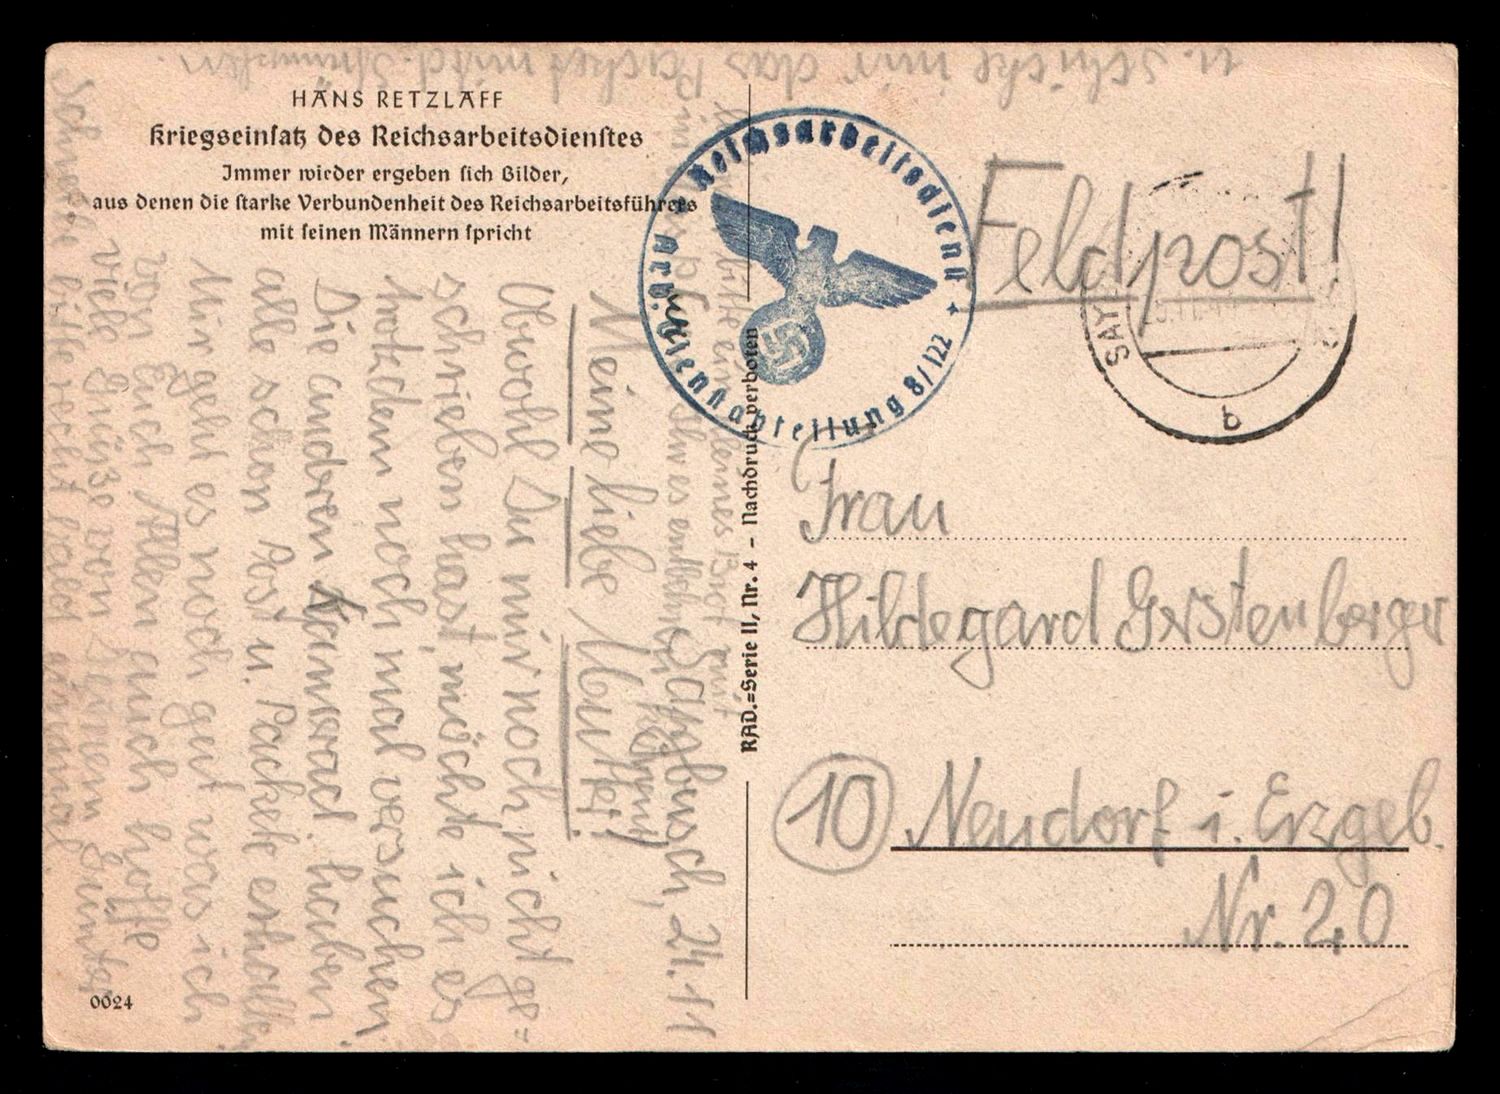 HANS RETZLAFF
Kriegseinsatz des Reichsarbeitsdienstes
Immer wieder ergeben sich Bilder,
aus denen die starke Verbundenheit des Reichsarbeitsführers
mit seinen Männern spricht
Sangbusch, 24.11
Meine liebe Mutti!
Obwohl Du mir noch nicht ge=
schrieben hast, möchte ich es
trotzdem noch mal versuchen.
Die anderen Kamerad. haben
alle schon Post u. Pakete erhalten
Mir geht es noch gut was ich
von Euch Allen auch hoffe
viele Grüße von Deinem Günter
Schreibe bitte recht bald einmal
u. schicke mir das Packet mit d. Strümpfen.
bitte ein kleines Brot mit
Ihr es entbehren könnt,
0024
RAD.=Serie II, Nr. 4 – Nachdruck verboten
Reichsarbeitsdienst
Arb. Dienstabteilung 8/122
SAY
b
Feldpost!
Frau
Hildegard Gerstenberger
10 Neudorf i. Erzgeb.
Nr. 20